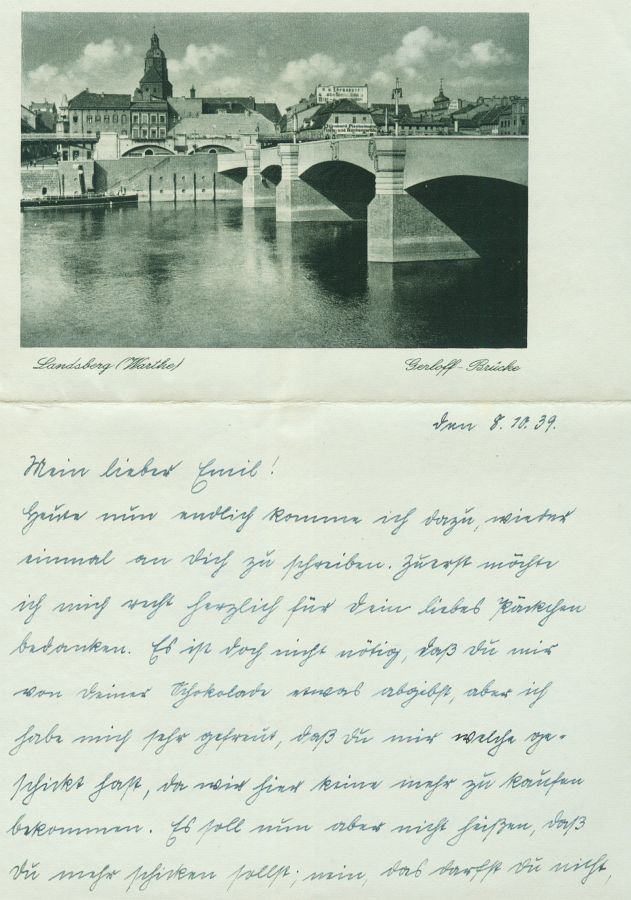 Landsberg (Warthe)
Gerloff-Brücke
den 8.10.39.
Mein lieber Emil!
Heute nun endlich komme ich dazu, wieder
einmal an Dich zu schreiben. Zuerst möchte
ich mich recht herzlich für Dein liebes Päckchen
bedanken. Es ist doch nicht nötig, daß Du mir
von Deiner Schokolade etwas abgibst, aber ich
habe mich sehr gefreut, daß Du mir welche ge-
schickt hast, da wir hier keine mehr zu kaufen
bekommen. Es soll nun aber nicht heißen, daß
Du mehr schicken sollst; nein, das darfst Du nicht,